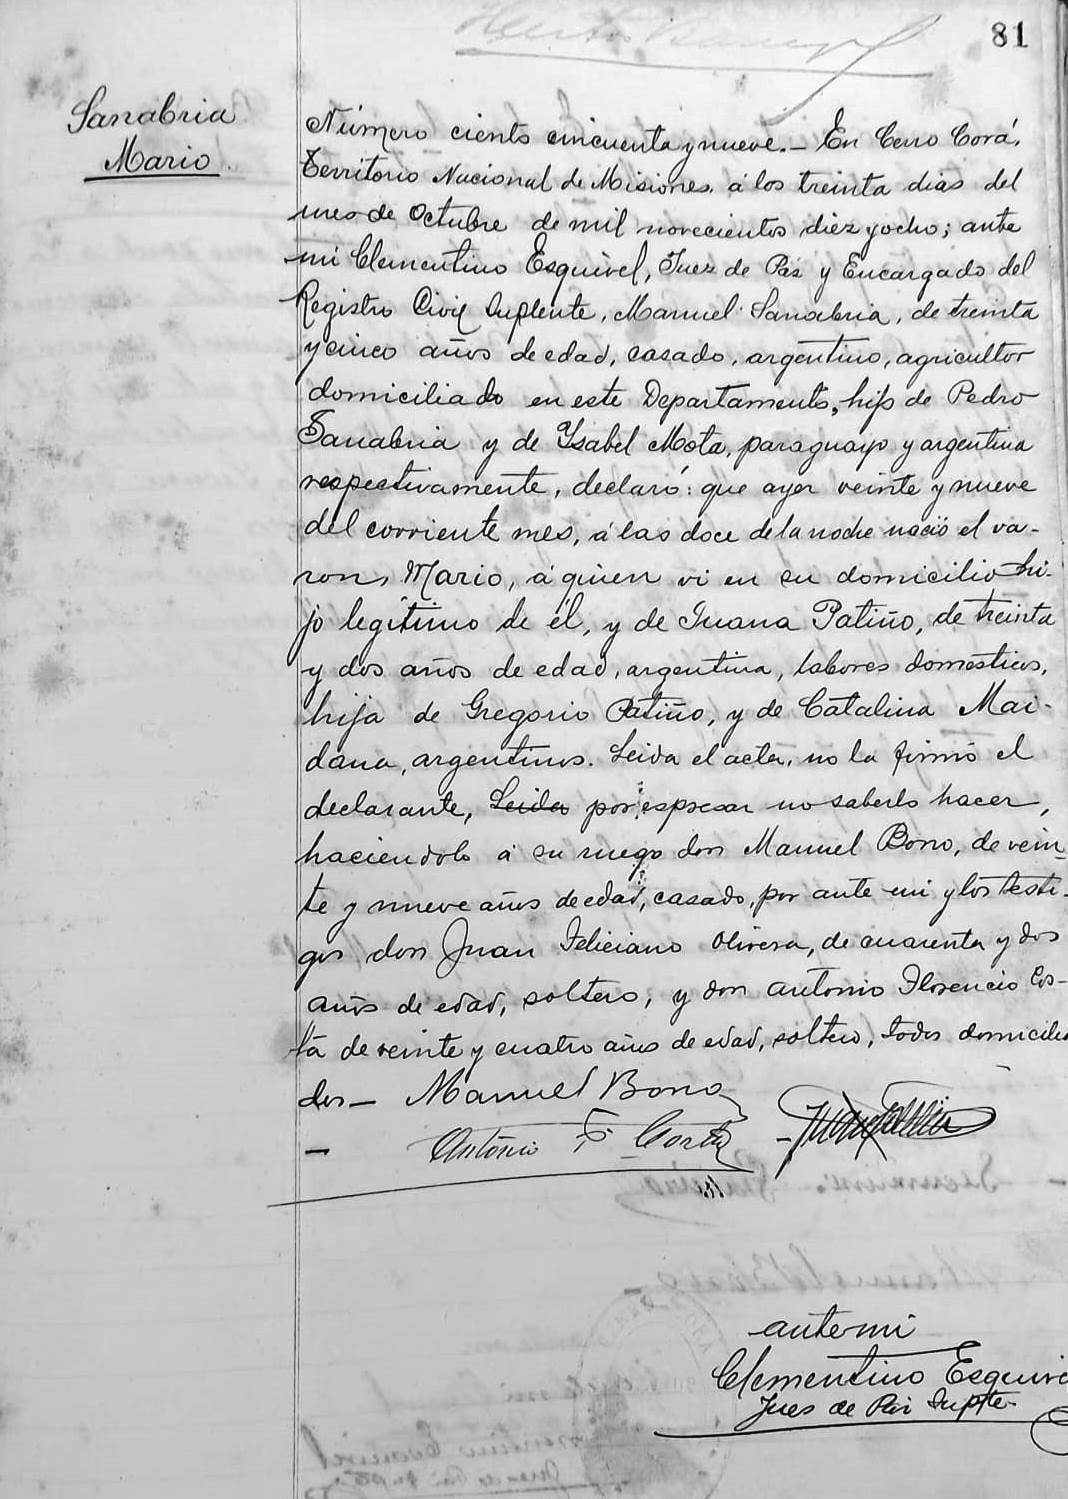 81
Sanabria
Mario.
Número ciento cincuenta y nueve.- En Cerro Corá,
Territorio Nacional de Misiones. á los treinta dias del
mes de Octubre de mil novecientos diez y ocho; ante
mi Clementino Esquivel, Juez de Paz y Encargado del
Registro Civil Suplente, Manuel Sanabria, de treinta
y cinco años de edad, casado, argentino, agricultor
domiciliado en este Departamento, hijo de Pedro
Sanabria y de Ysabel Mota, paraguayo y argentina
respectivamente, declaró: que ayer veinte y nueve
del corriente mes, á las doce de la noche nació el va-
ron, Mario, á quien vi en su domicilio hi-
jo legítimo de él, y de Juana Patiño, de treinta
y dos años de edad, argentina, labores domesticos,
hija de Gregorio Patiño, y de Catalina Mai-
dana, argentinos. Leida el acta, no la firmó el
declarante, Leida por espresar no saberlo hacer,
haciendolo á su ruego don Manuel Bono, de vein-
te y nueve años de edad, casado, por ante mi y los testi-
gos don Juan Feliciano Olivera, de cuarenta y dos
años de edad, soltero, y don Antonio Florencio Cos-
ta de veinte y cuatro años de edad, soltero, todos domicilia
dos- Manuel Bono
- Antonio F. Costa
ante mi
Clementino Esquivel
Jues de Paz Suplte.